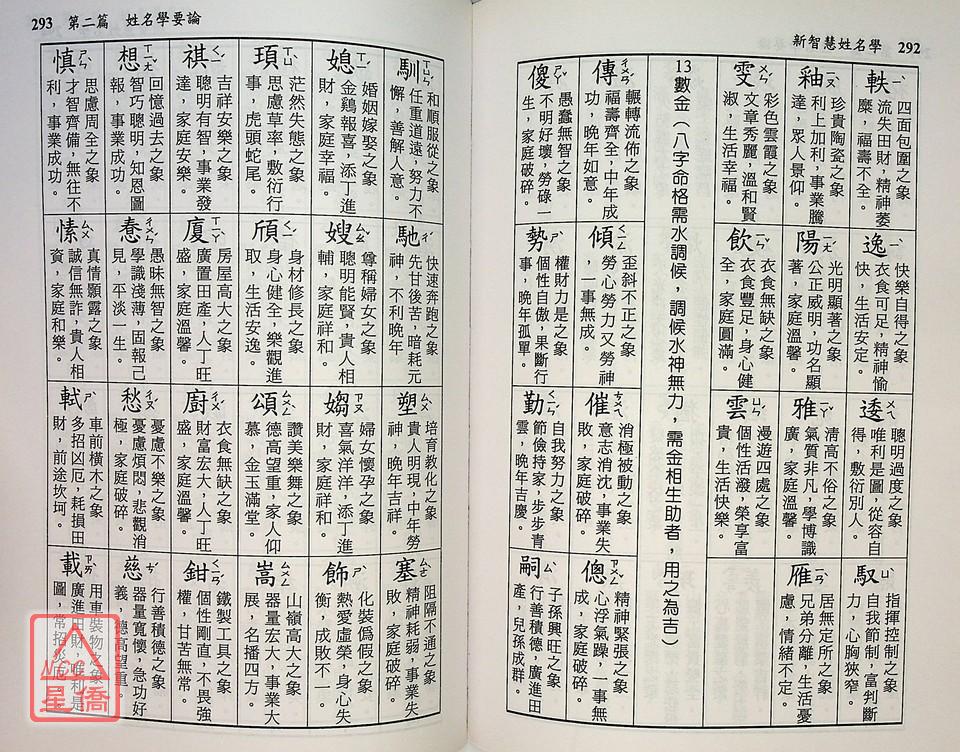 新智慧姓名學 292
軼 ㄧˋ
四面包圍之象
流失田財，精神萎
糜，福壽不全。
逸 ㄧˋ
快樂自得之象
衣食可足，精神愉
快，生活安定。
逶 ㄨㄟ
聰明過度之象
唯利是圖，從容自
得，敷衍別人。
馭 ㄩˋ
指揮控制之象
自我節制，富判斷
力，心胸狹窄。
釉 ㄧㄡˋ
珍貴陶瓷之象
利上加利，事業騰
達，眾人景仰。
陽 ㄧㄤˊ
光明顯著之象
公正威明，功名顯
著，家庭溫馨。
雅 ㄧㄚˇ
清高不俗之象
氣質非凡，學博識
廣，家庭溫馨。
雁 ㄧㄢˋ
居無定所之象
兄弟分離，生活憂
慮，情緒不定。
雯 ㄨㄣˊ
彩色雲霞之象
文章秀麗，溫和賢
淑，生活幸福。
飲 ㄧㄣˇ
衣食無缺之象
衣食豐足，身心健
全，家庭圓滿。
雲 ㄩㄣˊ
漫遊四處之象
個性活潑，榮享富
貴，生活快樂。
13數金（八字命格需水調候，調候水神無力，需金相生助者，用之為吉）
傳 ㄔㄨㄢˊ
輾轉流佈之象
福壽齊全，中年成
功，晚年如意。
傾 ㄑㄧㄥ
歪斜不正之象
勞心勞力又勞神
，一事無成。
催 ㄘㄨㄟ
消極被動之象
意志消沈，事業失
敗，家庭破碎。
傯 ㄗㄨㄥˇ
精神緊張之象
心浮氣躁，一事無
成，家庭破碎。
傻 ㄕㄚˇ
愚蠢無智之象
不明好壞，勞碌一
生，家庭破碎。
勢 ㄕˋ
權財力是之象
個性自傲，果斷行
事，晚年孤單。
勤 ㄑㄧㄣˊ
自我努力之象
節儉持家，步步青
雲，晚年吉慶。
嗣 ㄙˋ
子孫興旺之象
行善積德，廣進田
產，兒孫成群。
293 第二篇 姓名學要論
馴 ㄒㄩㄣˊ
和順服從之象
任重道遠，努力不
懈，善解人意。
馳 ㄔˊ
快速奔跑之象
先甘後苦，暗耗元
神，不利晚年
塑 ㄙㄨˋ
培育教化之象
貴人明現，中年勞
神，晚年吉祥。
塞 ㄙㄜˋ
阻隔不通之象
精神耗弱，事業失
敗，家庭破碎
媳 ㄒㄧˊ
婚姻嫁娶之象
金鷄報喜，添丁進
財，家庭幸福。
嫂 ㄙㄠˇ
尊稱婦女之象
聰明能賢，貴人相
輔，家庭祥和
媰 ㄗㄡˋ
婦女懷孕之象
喜氣洋洋，添丁進
財，家庭祥和。
飾 ㄕˋ
化裝偽假之象
熱愛虛榮，身心失
衡，成敗不一。
頊 ㄒㄩˋ
茫然失態之象
思慮草率，敷衍行
事，虎頭蛇尾。
頎 ㄑㄧˊ
身材修長之象
身心健全，樂觀進
取，生活安逸。
頌 ㄙㄨㄥˋ
讚美樂舞之象
德高望重，家人仰
慕，金玉滿堂。
嵩 ㄙㄨㄥ
山嶺高大之象
器量宏大，事業大
展，名播四方。
祺 ㄑㄧˊ
吉祥安樂之象
聰明有智，事業發
達，家庭安樂。
廈 ㄒㄧㄚˋ
房屋高大之象
廣置田產，人丁旺
盛，家庭溫馨。
廚 ㄔㄨˊ
衣食無缺之象
財富宏大，人丁旺
盛，家庭溫馨。
鉗 ㄑㄧㄢˊ
鐵製工具之象
個性剛直，不畏強
權，甘苦無常。
想 ㄒㄧㄤˇ
回憶過去之象
智巧聰明，知恩圖
報，事業成功。
惷 ㄔㄨㄣˇ
愚昧無智之象
學識淺薄，固報己
見，平淡一生。
愁 ㄔㄡˊ
憂慮不樂之象
憂慮煩悶，悲觀消
極，家庭破碎。
慈 ㄘˊ
行善積德之象
器量寬懷，急功好
義，德高望重。
慎 ㄕㄣˋ
思慮周全之象
才智齊備，無往不
利，事業成功。
愫 ㄙㄨˋ
真情顥露之象
誠信無詐，貴人相
資，家庭和樂。
軾 ㄕˋ
車前橫木之象
多招凶厄，耗損田
財，前途坎坷。
載 ㄗㄞˋ
用車裝物之象
廣進田財，唯利是
圖，常招凶厄。
NCC
星僑